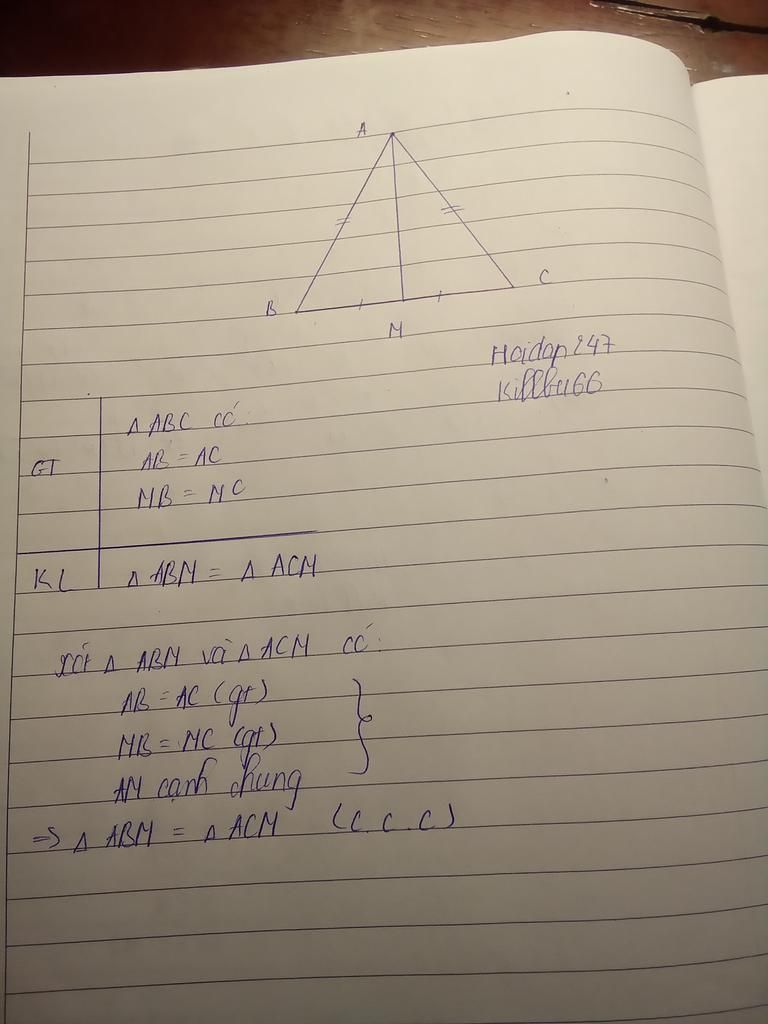 A
B
C
M
Hoidap247
Killbu66
Δ ABC có:
GT
AB = AC
MB = MC
KL
Δ ABM = Δ ACM
Xét Δ ABM và Δ ACM có:
AB = AC (gt)
MB = MC (gt)
AM cạnh chung
=> Δ ABM = Δ ACM (c.c.c)